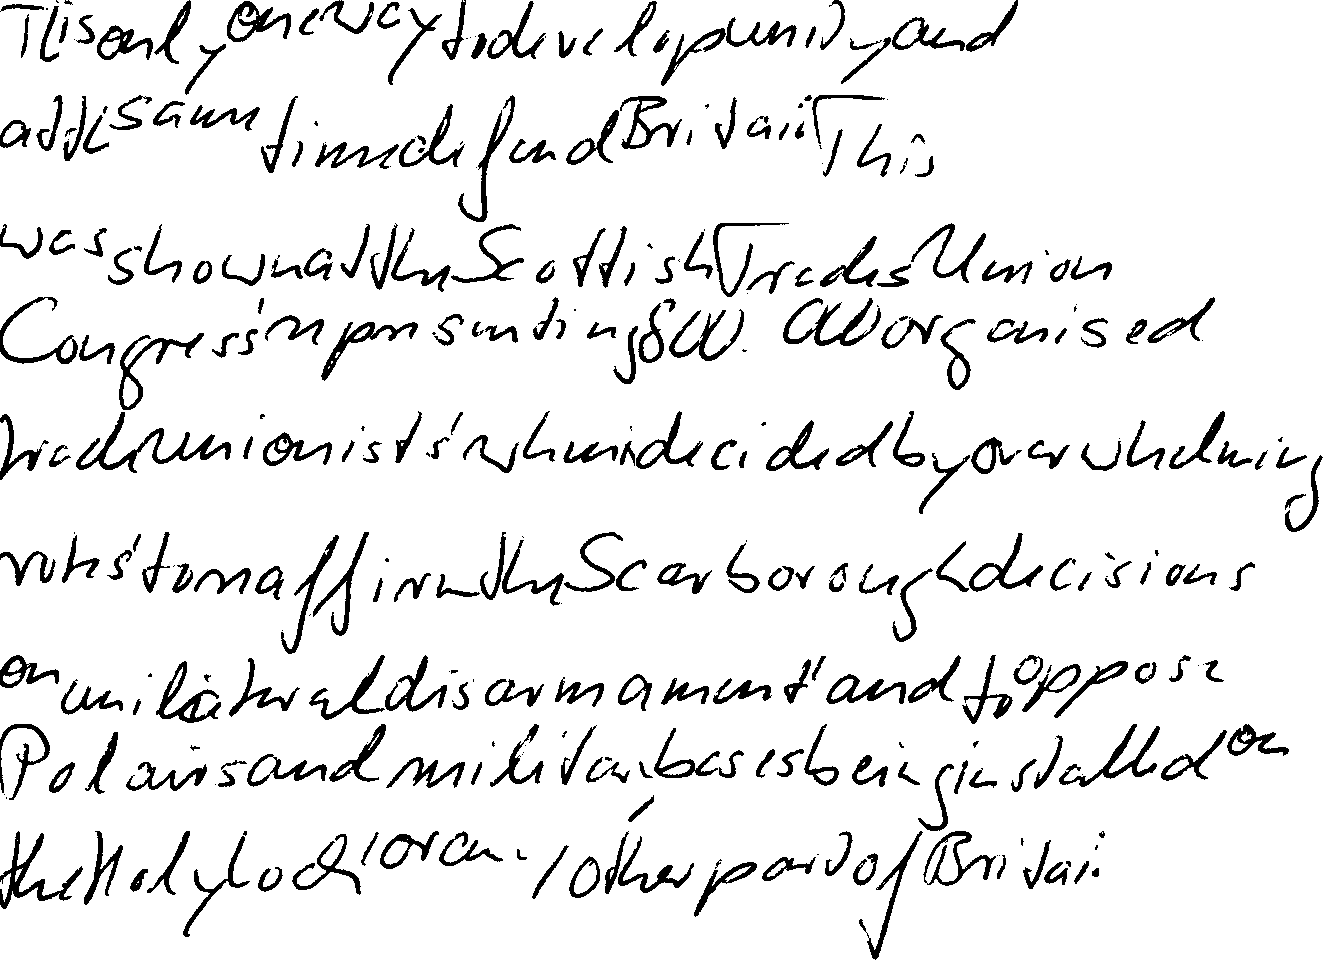 This only one way to develop unity and
at the same time defend Britain This
was shown at the Scottish Trades Union
Congress, representing 800 000 organised
trade unionists, when decided by overwhelming
votes, to reaffirm the Scarborough decisions
on unilateral disarmament, and to oppose
Polaris and military bases being installed on
the Holy Loch, or any other part of Britain